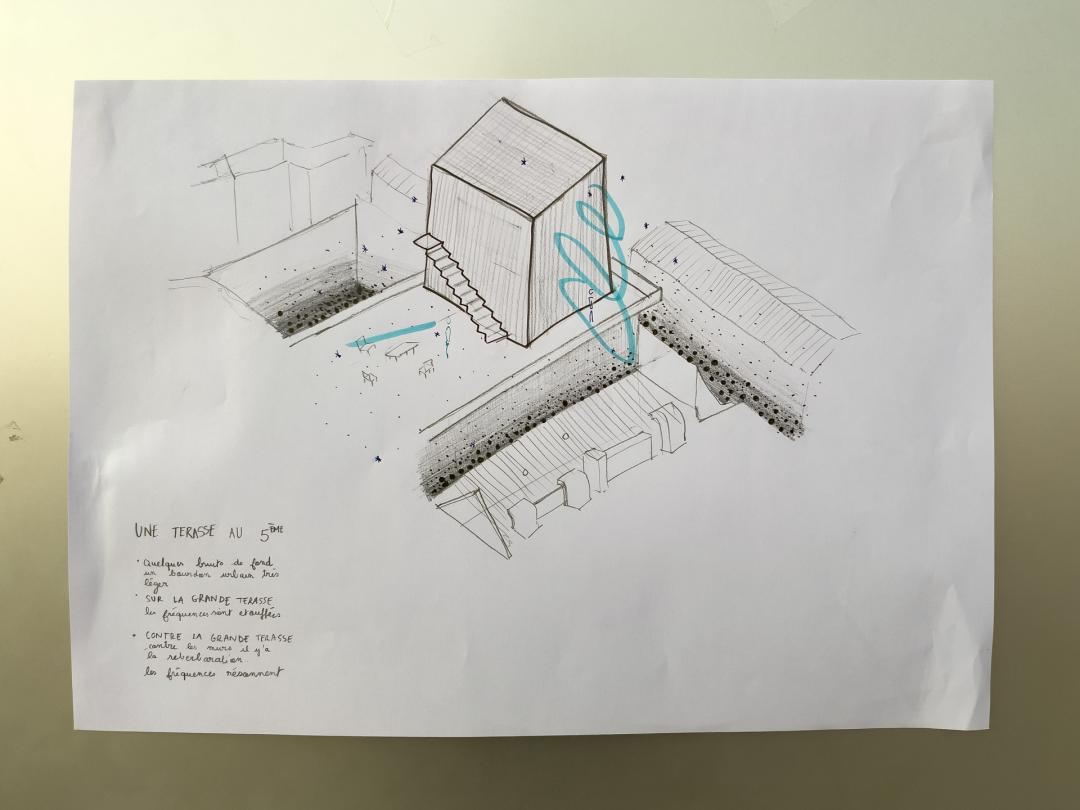 UNE TERASSE AU 5ÈME
• Quelques bruits de fond
un bourdon urbain très
léger
• SUR LA GRANDE TERASSE
les fréquences sont etouffées
• CONTRE LA GRANDE TERASSE
contre les murs il y'a
la reberbaration
les fréquences résonnent